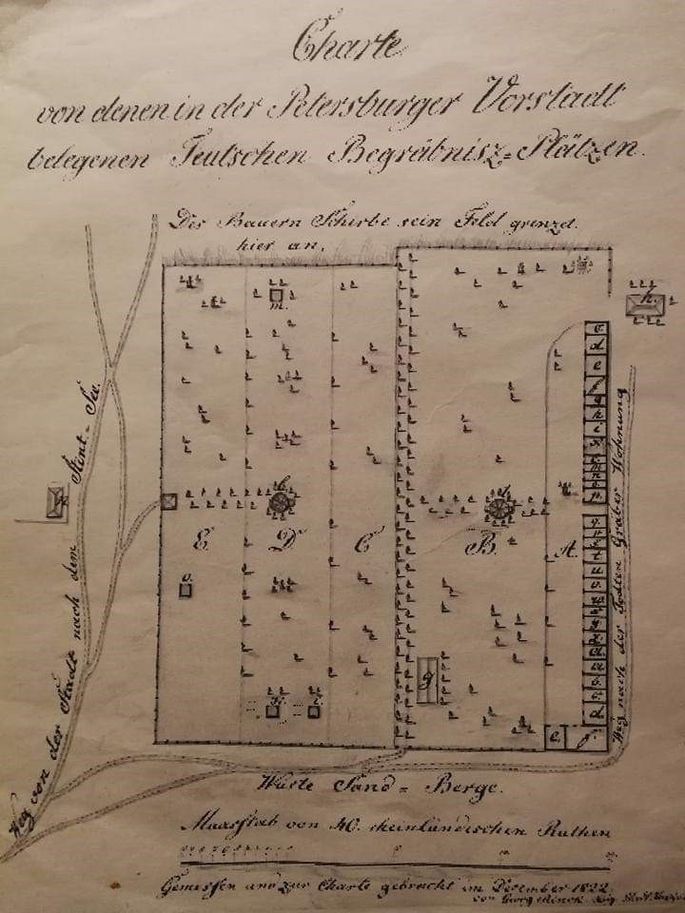 Charte
von denen in der Petersburger Vorstadt
belegenen Teutschen Begräbnisz=Plätzen.
Des Bauern Schirbe sein Feld grenzet
hier an.
m.
h.
Weg von der Stadt nach dem Stint=See
Weg nach der Todten Gräber Wohnung
E.
D.
C.
B.
A.
o.
g.
e.
f.
Wüste Sand=Berge.
Maasstab von 40. rheinländischen Ruthen
Gemessen und zur Charte gebracht im December 1822
von Georg